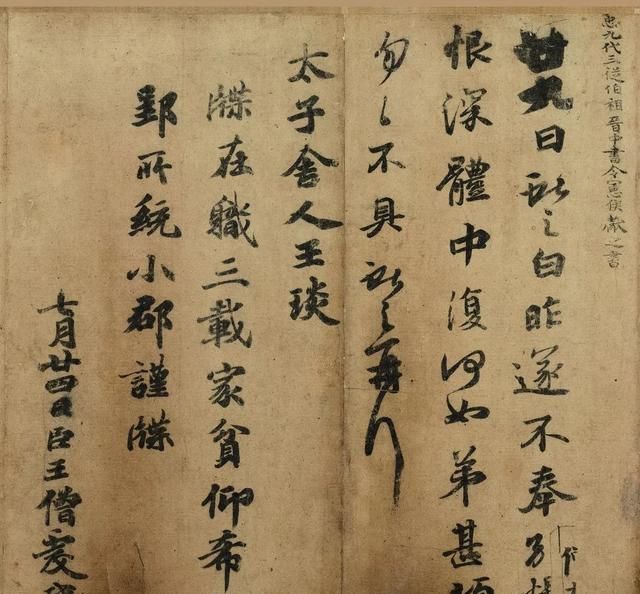 𢘑九代三從伯祖晉中書令憲侯獻之書
廿九日獻之白昨遂不奉別悵
恨深體中復何如弟甚頓
匆匆不具獻之再拜
太子舍人王琰
牒在職三載家貧仰希
郢所統小郡謹牒
七月廿四日臣王僧虔